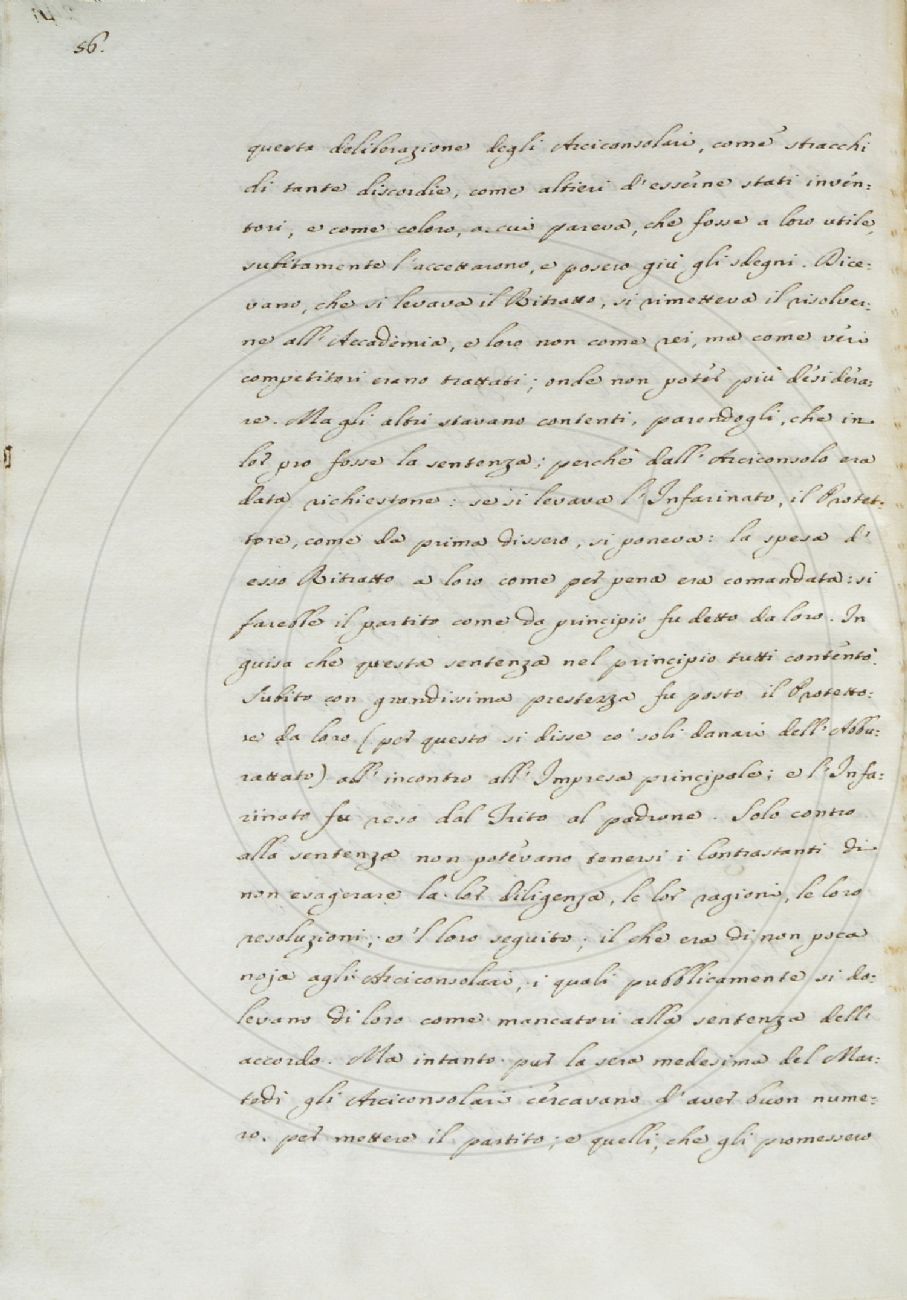 56.
questa deliberazione degli Arciconsolari, come stracchi
di tante discordie, come altieri d'esserne stati inven:
tori, e come coloro, a cui pareva, che fosse a loro utile,
subitamente l'accettarono, e posero giù gli sdegni. Dice:
vano, che si levava il Ritratto, si rimetteva il risolver:
ne all'Accademia, e loro non come rei, ma come veri
competitori erano trattati; onde non poter più desidera:
re. Ma gli altri stavano contenti, parendogli, che in
lor pro fosse la sentenza; perchè dall'Arciconsolo era
data richiestone: se si levava l'Infarinato, il Protet:
tore, come da prima dissero, si poneva: la spesa d'
esso Ritratto a loro come per pena era comandata: si
farebbe il partito come da principio fu detto da loro. In
guisa che questa sentenza nel principio tutti contentò.
Subito con grandissima prestezza fu posto il Protetto:
re da loro (per questo si disse co' soli danari dell'Abbu:
rattato) all'incontro all'Impresa principale; e l'Infa:
rinato fu reso dal Trito al padrone. Solo contro
alla sentenza non potevano tenersi i Contrastanti di
non esagerare la lor diligenza, le lor ragioni, le loro
resoluzioni, e 'l loro seguito; il che era di non poca
noja agli Arciconsolari, i quali pubblicamente si do:
levano di loro come mancatori alla sentenza dell'
accordo. Ma intanto per la sera medesima del Mar:
tedì gli Arciconsolari cercavano d'aver buon nume:
ro per mettere il partito; e quelli, che gli promessero